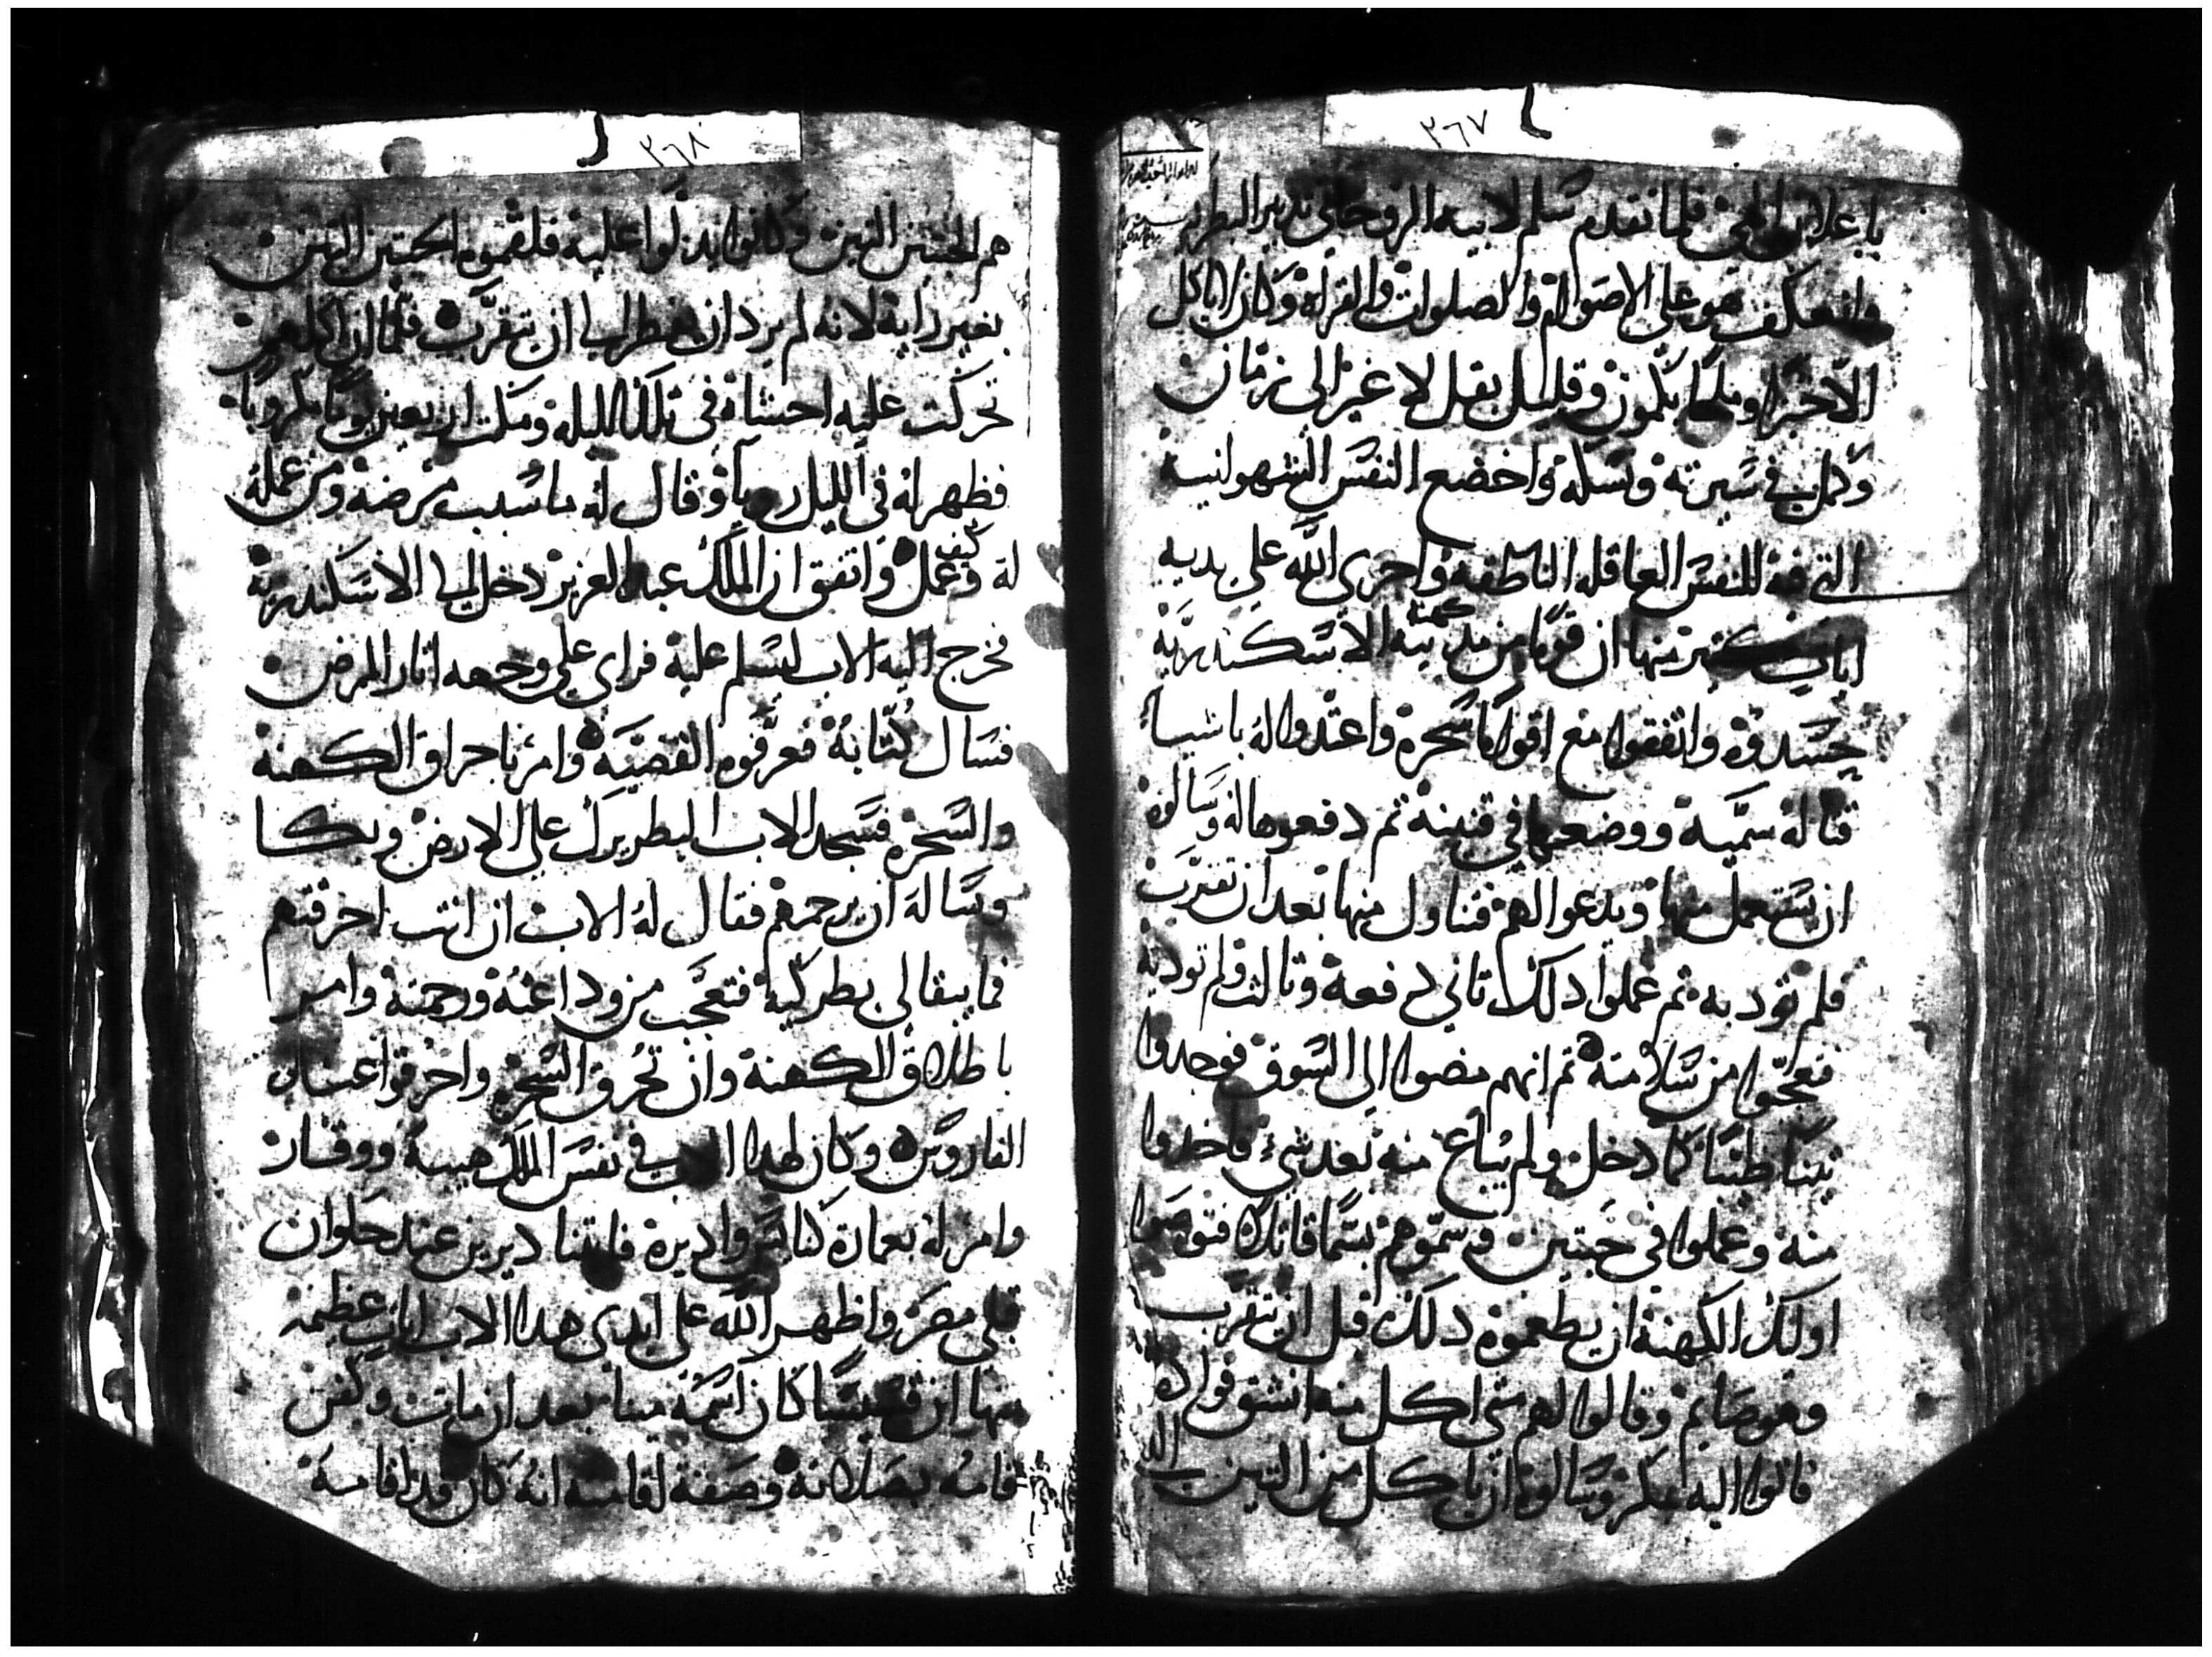 ٣٦٧
باعلان الهي فلما تقدم سلم لابيه الروحاني تدبير البطريركيه
وانعكف هو علي الاصوام والصلوات والقراه وكان لا ياكل
الا خبزا وملحا بكمون وقليل بقل لا غير الي زمان
وكمل في سيرته ونسكه واخضع النفس الشهوانيه
الترفه للنفس العاقله الناطقه واجري الله علي يديه
ايات كثير منها ان قوما من كهنة مدينه الاسكندريه
حسدوه واتفقوا مع اقواما سحره واعتدوا له باشيا
قتاله سميه ووضعوها في قنينه ثم دفعوها له وسالوه
ان يستعمل منها ويدعوا لهم فتناول منها بعد ان تقرب
فلم تود به ثم عملوا دلك تاني دفعه وتالت ولم توديه
فتعجبوا من سلامته ثم انهم مضوا الي السوق فوجدوا
تينا طيبا كما دخل ولم يباع منه بعد شي فاخدوا
منه وعملوا في حبتين وسموهم بسما قاتلا فتوصوا
اولئك الكهنه ان يطعموه دلك قبل ان يتقرب
وهو صايم وقالوا لهم متي اكل منه انشق فواده
فاتوا اليه بمكر وسالوه ان ياكل من التين الذ
٣٦٨
هم الحبتين التين وكانوا يدللوا عليه فلقموه الحبتين التين
بغير رايه لانه لم يرد ان يفطر الي ان يتقرب فلما ان اكلهم
تحركت عليه احشاه في تلك الليله ومكت اربعين يوما مكروبا
فظهر له في الليل رويا وقال له ما سبب مرضه ومن عمله
له وكيف عمل واتفق ان الملك عبد العزيز دخل الي الاسكندريه
فخرج اليه الاب ليسلم عليه فراي علي وجهه اتار المرض
فسال كتابه فعرفوه القضيه وامر باحراق الكهنه
والسحره فسجد الاب البطريرك علي الارض وبكا
وساله ان يرحمهم فقال له الاب ان انت احرقتهم
فما يبقا لي بطركيه فتعجب من وداعته ورحمته وامر
باطلاق الكهنه وان تحرق السحره واحرقوا عند
الفاروس وكان لهدا الاب في نفس الملك هيبه ووقار
وامر له بعمارة كنايس واديره فابتنا ديرين عند حلوان
قبلي مصر واظهر الله علي ايدي هدا الاب ايات عظيمه
منها ان قسيسا كان اسمه مينا بعد ان مات وكفن
قامه بصلاته وصفة لقامته انه كان قد اقامه